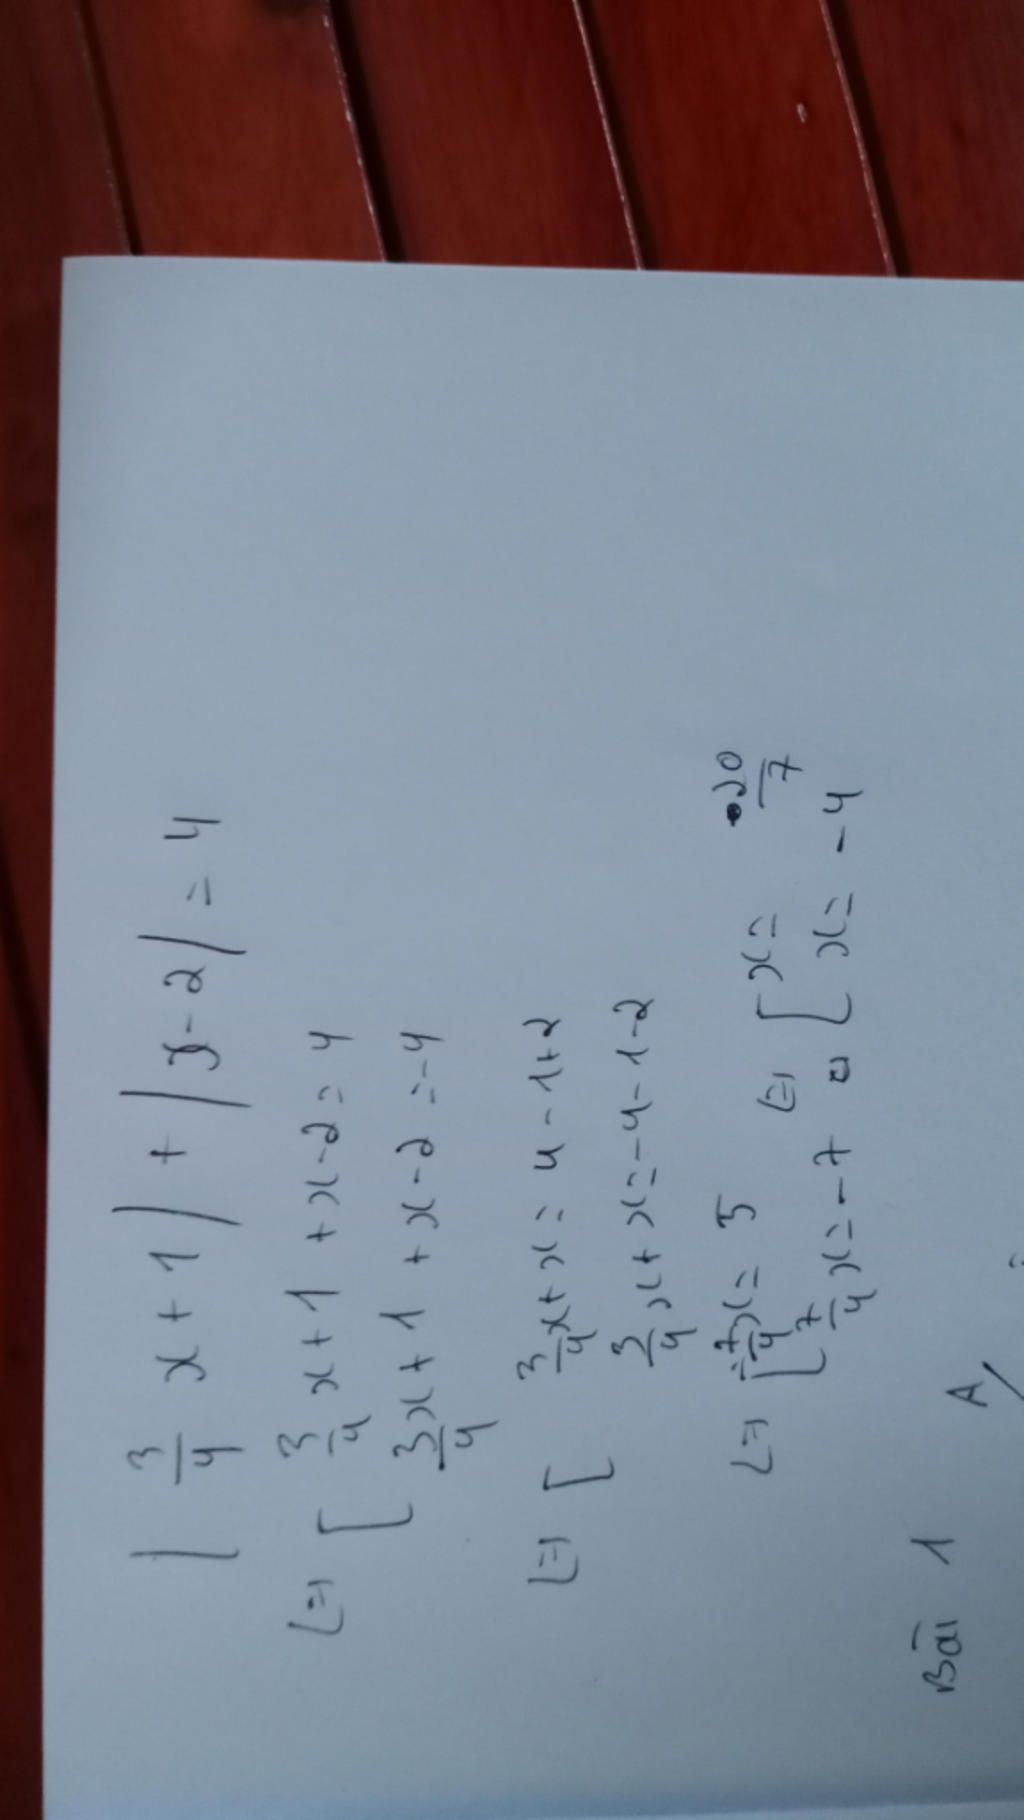 |3/4 x + 1| + |x - 2| = 4
<=> [ 3/4 x + 1 + x - 2 = 4
3x/4 + 1 + x - 2 = -4
<=> [ 3/4 x + x = 4 - 1 + 2
3/4 x + x = -4 - 1 - 2
<=> [ 7/4 x = 5 <=> [ x = 20/7
7/4 x = -7 x = -4
Bài 1 A/